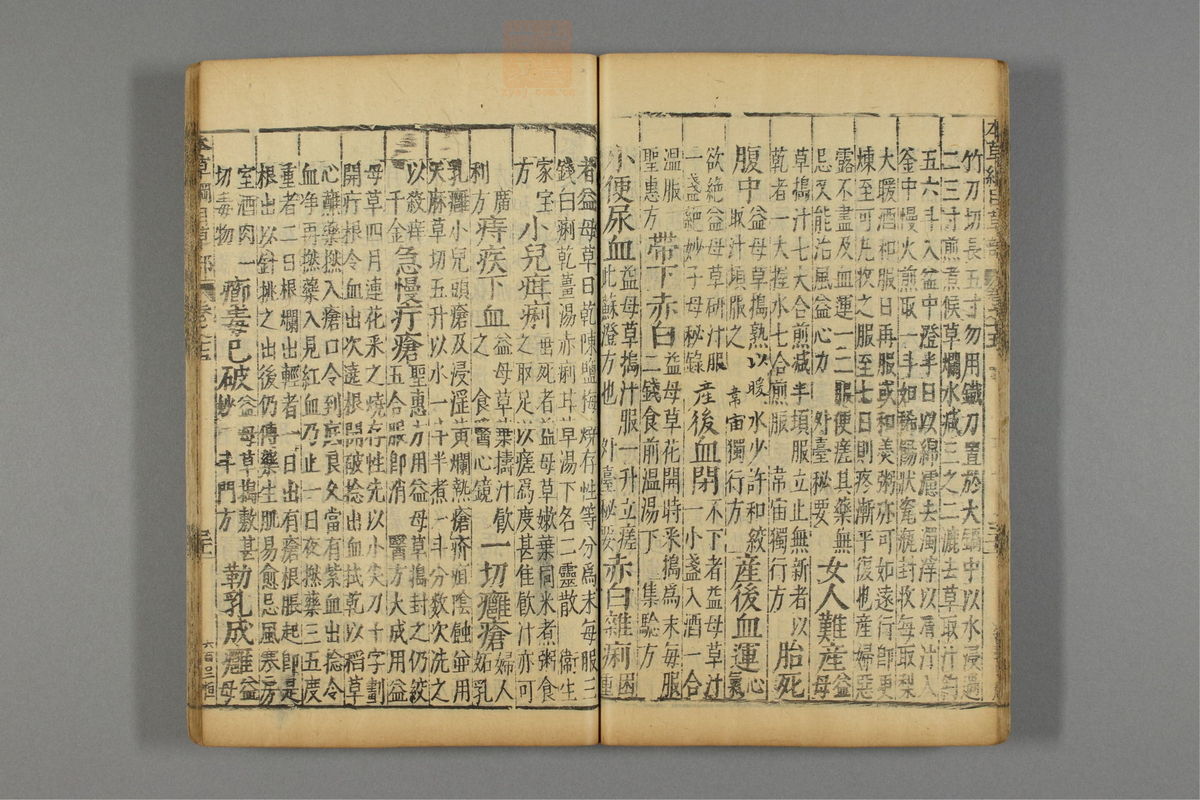 竹刀切長五寸勿用鐵刀置於大鍋中以水浸過
二三寸煎煮候草爛水減三之二漉去草取汁約
五六斗入盆中澄半日以綿濾去濁滓以清汁入
釜中慢火煎取一斗如稀餳狀瓷瓶封收每取梨
大暖酒和服日再服或和羹粥亦可如遠行卽更
煉至可丸收之服至七日則疼漸平復也産婦惡
露不盡及血運一二服便瘥其藥無
忌又能治風益心力 外臺秘要 女人難産 益母
草搗汁七大合煎減半頓服立止無新者以
乾者一大握水七合煎服 韋宙獨行方 胎死
腹中 益母草搗熟以暖水少許和絞
取汁頓服之 韋宙獨行方 産後血運 心氣
欲絶益母草研汁服
一盞絶妙 子母秘錄 産後血閉 不下者益母草汁
一小盞入酒一合
溫服 聖惠方 帶下赤白 益母草花開時采搗爲末每服
二錢食前溫湯下 集驗方
小便尿血 益母草搗汁服一升立瘥
此蘇澄方也 外臺秘要 赤白雜痢 困重
者益母草日乾陳鹽梅燒存性等分爲末每服三
錢白痢乾薑湯赤痢甘草湯下名二靈散 衛生
家寶方 小兒疳痢 垂死者益母草嫩葉同米煮粥食
之取足以瘥爲度甚佳飮汁亦可
廣利方 痔疾下血 益母草葉擣汁飮
之 食醫心鏡 一切癰瘡 婦人妬乳
乳癰小兒頭瘡及浸淫黃爛熱瘡疥疽陰蝕並用
天麻草切五升以水一斗半煮一斗分數次洗之
以殺痒 千金 急慢疔瘡 聖惠方用益母草搗封之仍絞
五合服卽消 醫方大成用益
母草四月連花采之燒存性先以小尖刀十字劃
開疔根令血出次遶根開破捻出血拭乾以稻草
心蘸藥撚入瘡口令到底良久當有紫血出捻令
血净再撚藥入見紅血乃止一日夜撚藥三五度
重者二日根爛出輕者一日出有瘡根脹起卽是
根出以針挑之出後仍傅藥生肌易愈忌風寒房
室酒肉一切毒物 癤毒已破 益母草搗敷甚
妙 斗門方 勒乳成癰 益母